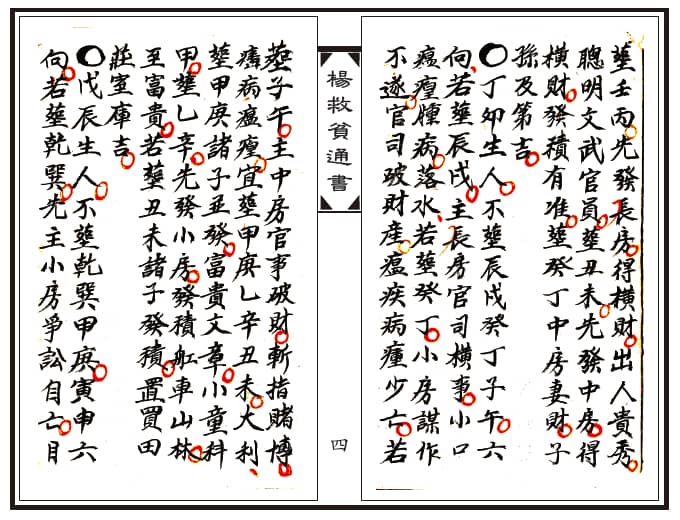 葬壬丙先發長房得橫財出人貴秀
聰明文武官員葬丑未先發中房得
橫財發積有准葬癸丁中房妻財子
孫及第吉
〇丁卯生人不葬辰戌癸丁子午六
向若葬辰戌主長房官司橫事小口
瘟瘽腫病落水若葬癸丁小房謀作
不遂官司破財産瘟疾病瘇少亡若
楊救貧通書
四
葬子午主中房官事破財斬指賭博
病瘟瘽宜葬甲庚乙辛丑未大利
葬甲庚諸子並發富貴文章小童科
甲葬乙辛先發小房發積船車山林
至富貴若葬丑未諸子發積置買田
莊室庫吉
〇戊辰生人不葬乾巽甲庚寅申六
向若葬乾巽先主小房爭訟自亡目